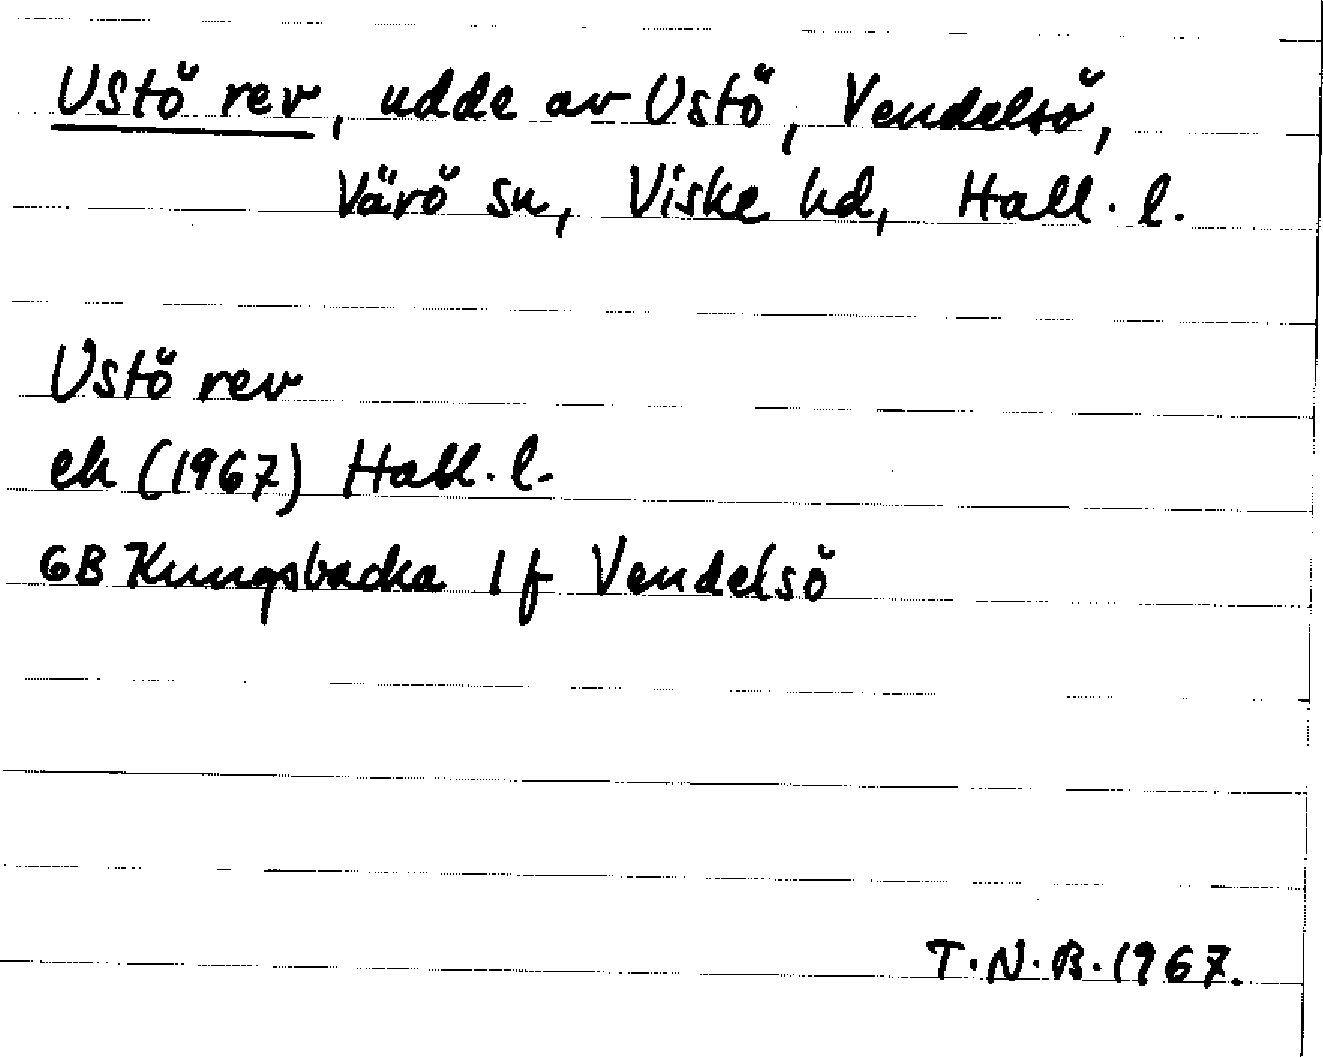 Ustö rev, udde av Ustö, Vendelsö,
Värö sn, Viske hd, Hall. l.
Ustö rev
ek (1967) Hall. l.
6B Kungsbacka 1f Vendelsö
T.N.B. 1967.